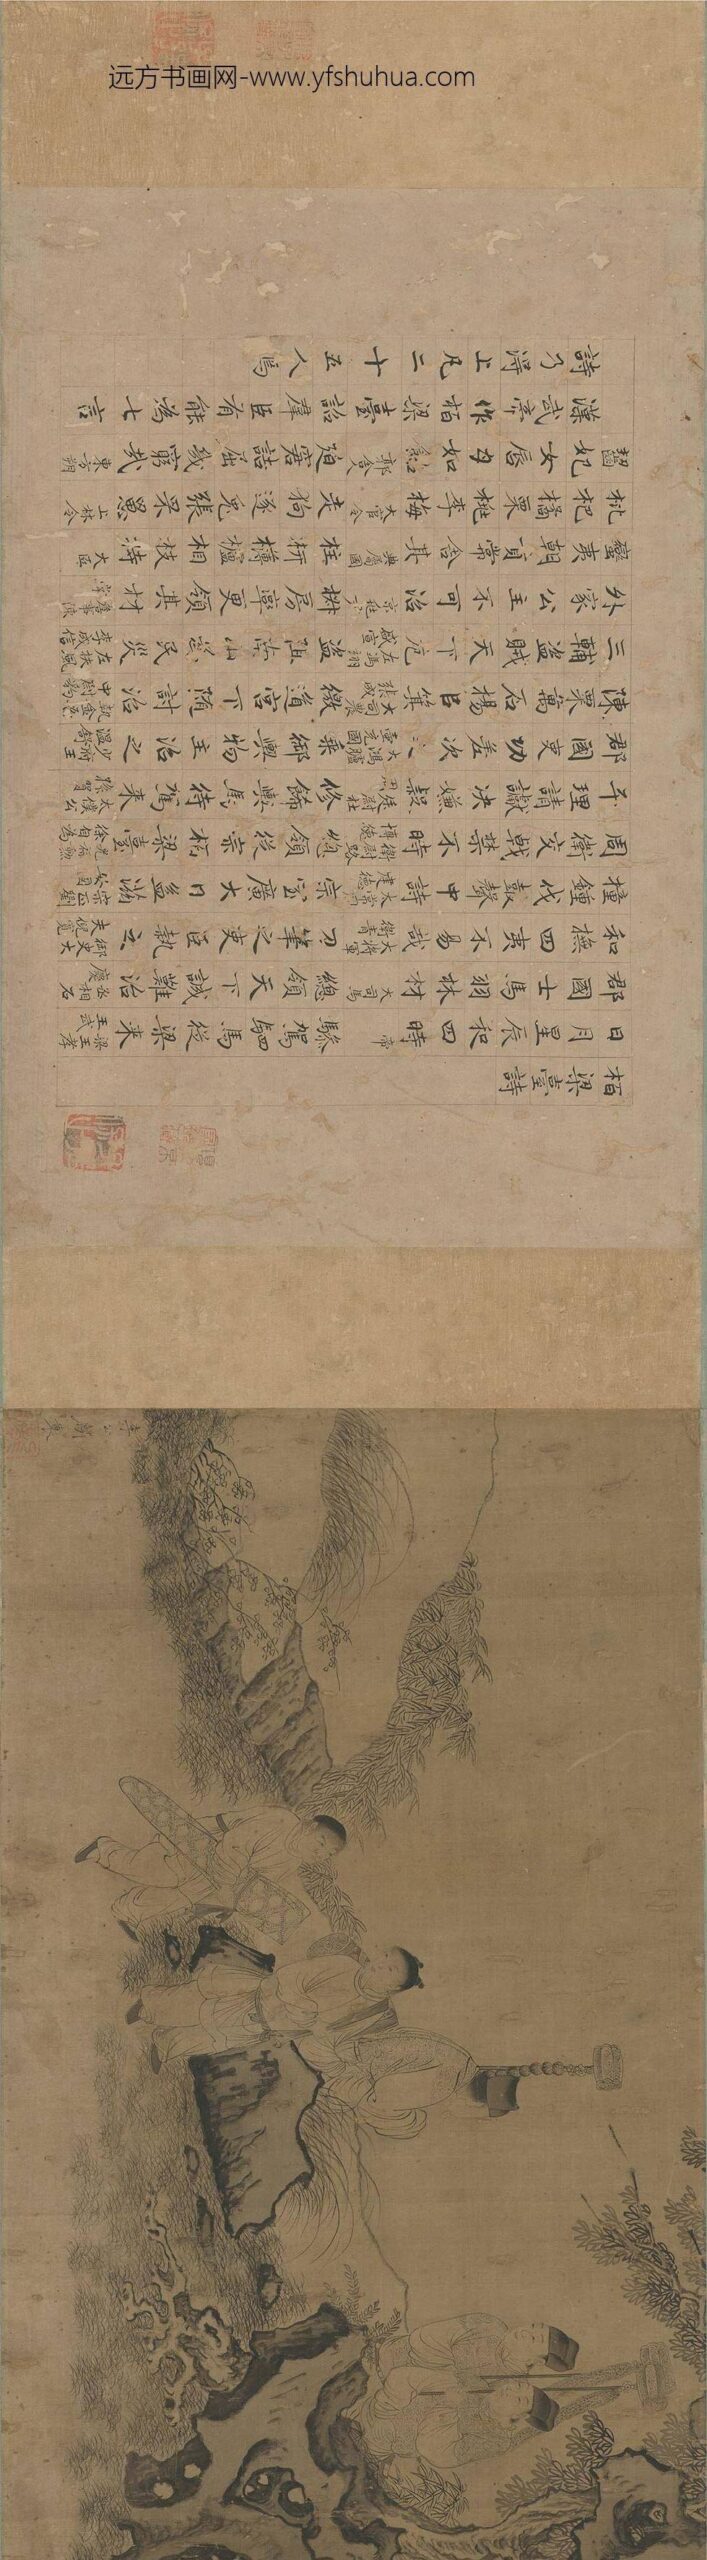 远方书画网-www.yfshuhua.com
栢梁臺詩
日月星辰和四時 帝 驂駕駟馬從梁來 梁王孝王武
郡國士馬羽林材 大司馬 總領天下誠難治 丞相石慶
和撫四夷不易哉 大將軍衛青 刀筆之吏臣執之 御史大夫倪寬
撞鍾伐鼓聲中詩 太常周建德 宗室廣大日益滋 宗正劉安國
周衛交戟禁不時 衛尉路博德 總領從宗栢梁臺 光祿勳徐自為
平理請讞決嫌疑 廷尉杜周 修飾輿馬待駕來 太僕公孫賀
郡國吏功差次之 大鴻臚壺充國 乘輿御物主治之 少府王溫舒
陳粟萬石揚㠯箕 大司農張成 徼道宮下隨討治 執金吾中尉豹
三輔盜賊天下危 左馮翊盛宣 盜阻南山為民災 左扶風李成信
外家公主不可治 京兆尹 椒房率更領其材 詹事陳掌
蠻夷朝貢常舍其 典屬國 柱枅欂櫨相枝持 大匠
枇杷橘栗桃李梅 大官令 走狗逐兔張罘罳 上林令
齧妃女唇甘如飴 郭舍人 迫窘詰屈幾窮哉 東方朔
漢武帝作栢梁臺詔羣臣有能為七言
詩乃得上凡二十五人焉